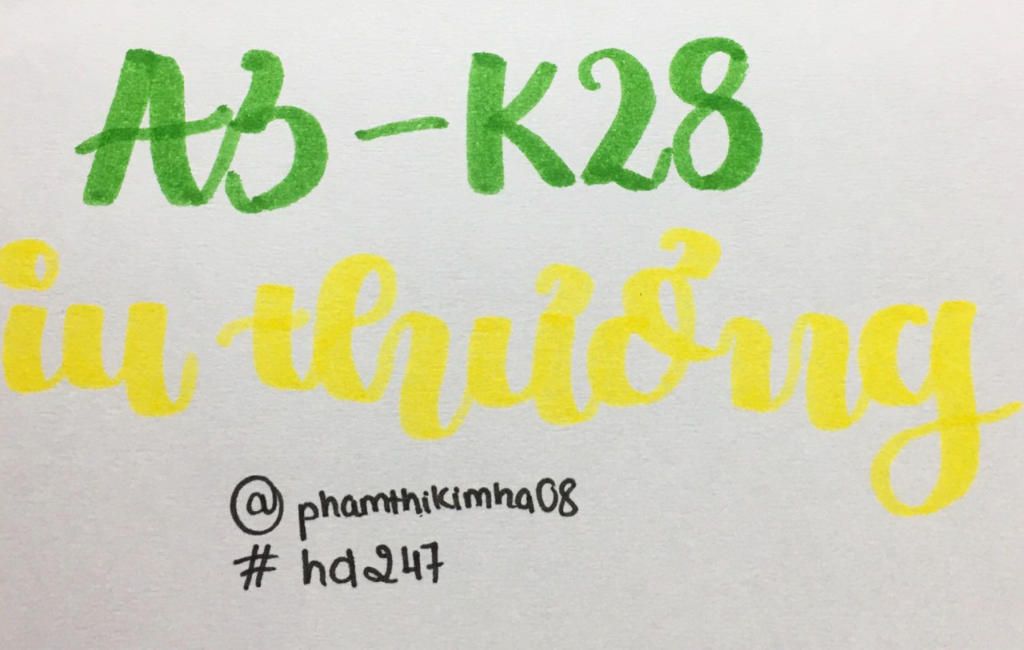 A3 - K28
iu thương
@phamthikimha08
# hd247